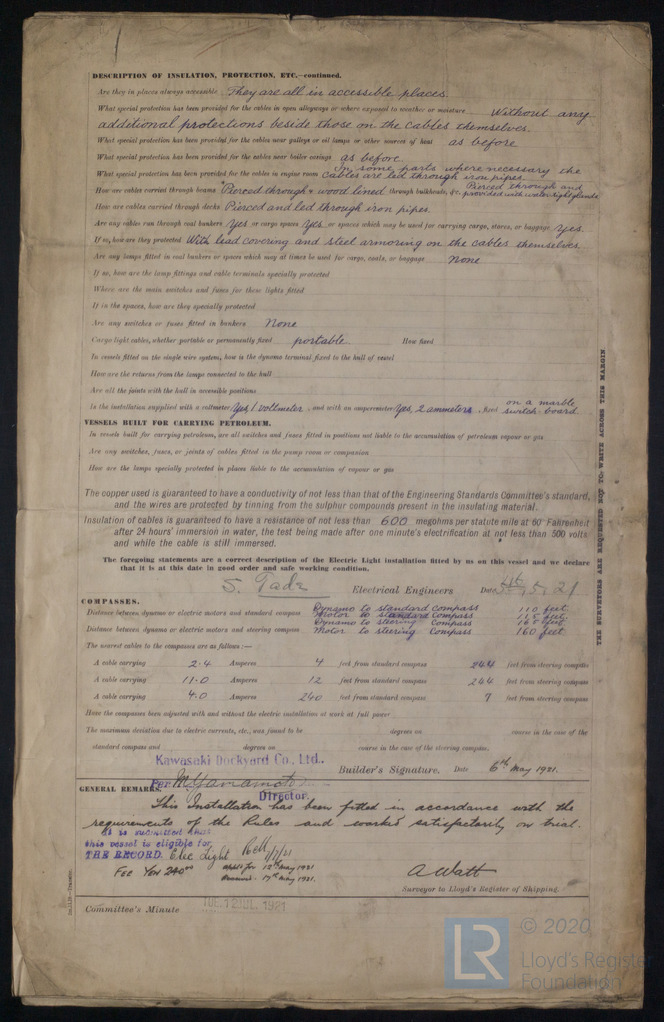 DESCRIPTION OF INSULATION, PROTECTION, ETC.—continued.
Are they in places always accessible They are all in accessible places.
What special protection has been provided for the cables in open alleyways or where exposed to weather or moisture Without any
additional protections beside those on the cables themselves.
What special protection has been provided for the cables near galleys or oil lamps or other sources of heat as before
What special protection has been provided for the cables near boiler casings as before
What special protection has been provided for the cables in engine room In some parts where necessary the
cables are led through iron pipes.
How are cables carried through beams Pierced through & wood lined through bulkheads, &c. Pierced through and
provided with watertight glands
How are cables carried through decks Pierced and led through iron pipes.
Are any cables run through coal bunkers Yes or cargo spaces Yes or spaces which may be used for carrying cargo, stores, or baggage Yes.
If so, how are they protected With lead covering and steel armoring on the cables themselves.
Are any lamps fitted in coal bunkers or spaces which may at times be used for cargo, coals, or baggage None
If so, how are the lamp fittings and cable terminals specially protected
Where are the main switches and fuses for these lights fitted
If in the spaces, how are they specially protected
Are any switches or fuses fitted in bunkers None
Cargo light cables, whether portable or permanently fixed portable How fixed
In vessels fitted on the single wire system, how is the dynamo terminal fixed to the hull of vessel
How are the returns from the lamps connected to the hull
Are all the joints with the hull in accessible positions
Is the installation supplied with a voltmeter Yes, 1 voltmeter, and with an amperemeter Yes, 2 ammeters, fixed on a marble
switch-board
VESSELS BUILT FOR CARRYING PETROLEUM.
In vessels built for carrying petroleum, are all switches and fuses fitted in positions not liable to the accumulation of petroleum vapour or gas
Are any switches, fuses, or joints of cables fitted in the pump room or companion
How are the lamps specially protected in places liable to the accumulation of vapour or gas
The copper used is guaranteed to have a conductivity of not less than that of the Engineering Standards Committee's standard,
and the wires are protected by tinning from the sulphur compounds present in the insulating material.
Insulation of cables is guaranteed to have a resistance of not less than 600 megohms per statute mile at 60° Fahrenheit
after 24 hours' immersion in water, the test being made after one minute's electrification at not less than 500 volts
and while the cable is still immersed.
The foregoing statements are a correct description of the Electric Light installation fitted by us on this vessel and we declare
that it is at this date in good order and safe working condition.
Electrical Engineers Date 5. 21
COMPASSES.
Distance between dynamo or electric motors and standard compass Dynamo to standard Compass 110 feet
Motor to standard Compass
Dynamo to steering Compass
Distance between dynamo or electric motors and steering compass Motor to steering Compass 160 feet
The nearest cables to the compasses are as follows:—
A cable carrying 2.4 Amperes 4 feet from standard compass 244 feet from steering compass
A cable carrying 11.0 Amperes 12 feet from standard compass 244 feet from steering compass
A cable carrying 4.0 Amperes 240 feet from standard compass 7 feet from steering compass
Have the compasses been adjusted with and without the electric installation at work at full power
The maximum deviation due to electric currents, etc., was found to be degrees on course in the case of the
standard compass and degrees on course in the case of the steering compass.
Kawasaki Dockyard Co., Ltd.,
Per M Yamamoto Builder's Signature. Date 6th May 1921.
Director.
GENERAL REMARKS.
This Installation has been fitted in accordance with the
requirements of the Rules and worked satisfactorily on trial.
It is submitted that
this vessel is eligible for
THE RECORD. Elec Light
Fee Yen 240.00 Applied for 12th May 1921
Received 17th May 1921.
A Watt
Surveyor to Lloyd's Register of Shipping.
Committee's Minute TUE. 12 JUL. 1921
THE SURVEYORS ARE REQUESTED NOT TO WRITE ACROSS THIS MARGIN
LR
© 2020
Lloyd's Register
Foundation